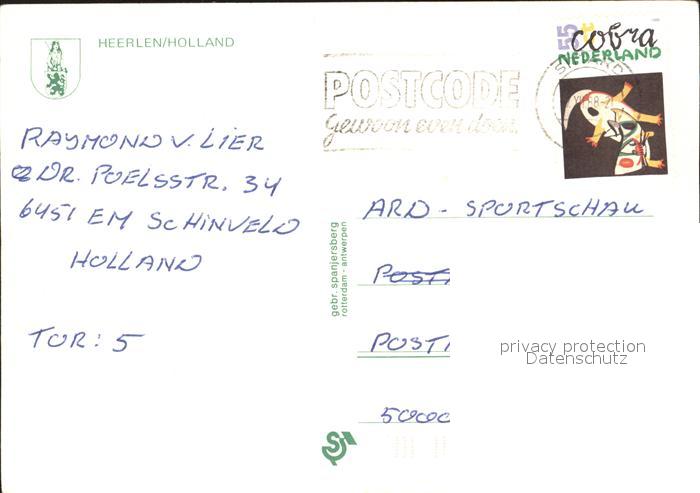 HEERLEN/HOLLAND
55 c
cobra
NEDERLAND
POSTCODE
gewoon even doen.
RAYMOND V. LIER
DR. POELSSTR. 34
6451 EM SCHINVELD
HOLLAND
TOR: 5
gebr. spanjersberg
rotterdam - antwerpen
ARD - SPORTSCHAU
POST
POST
privacy protection
Datenschutz
5000